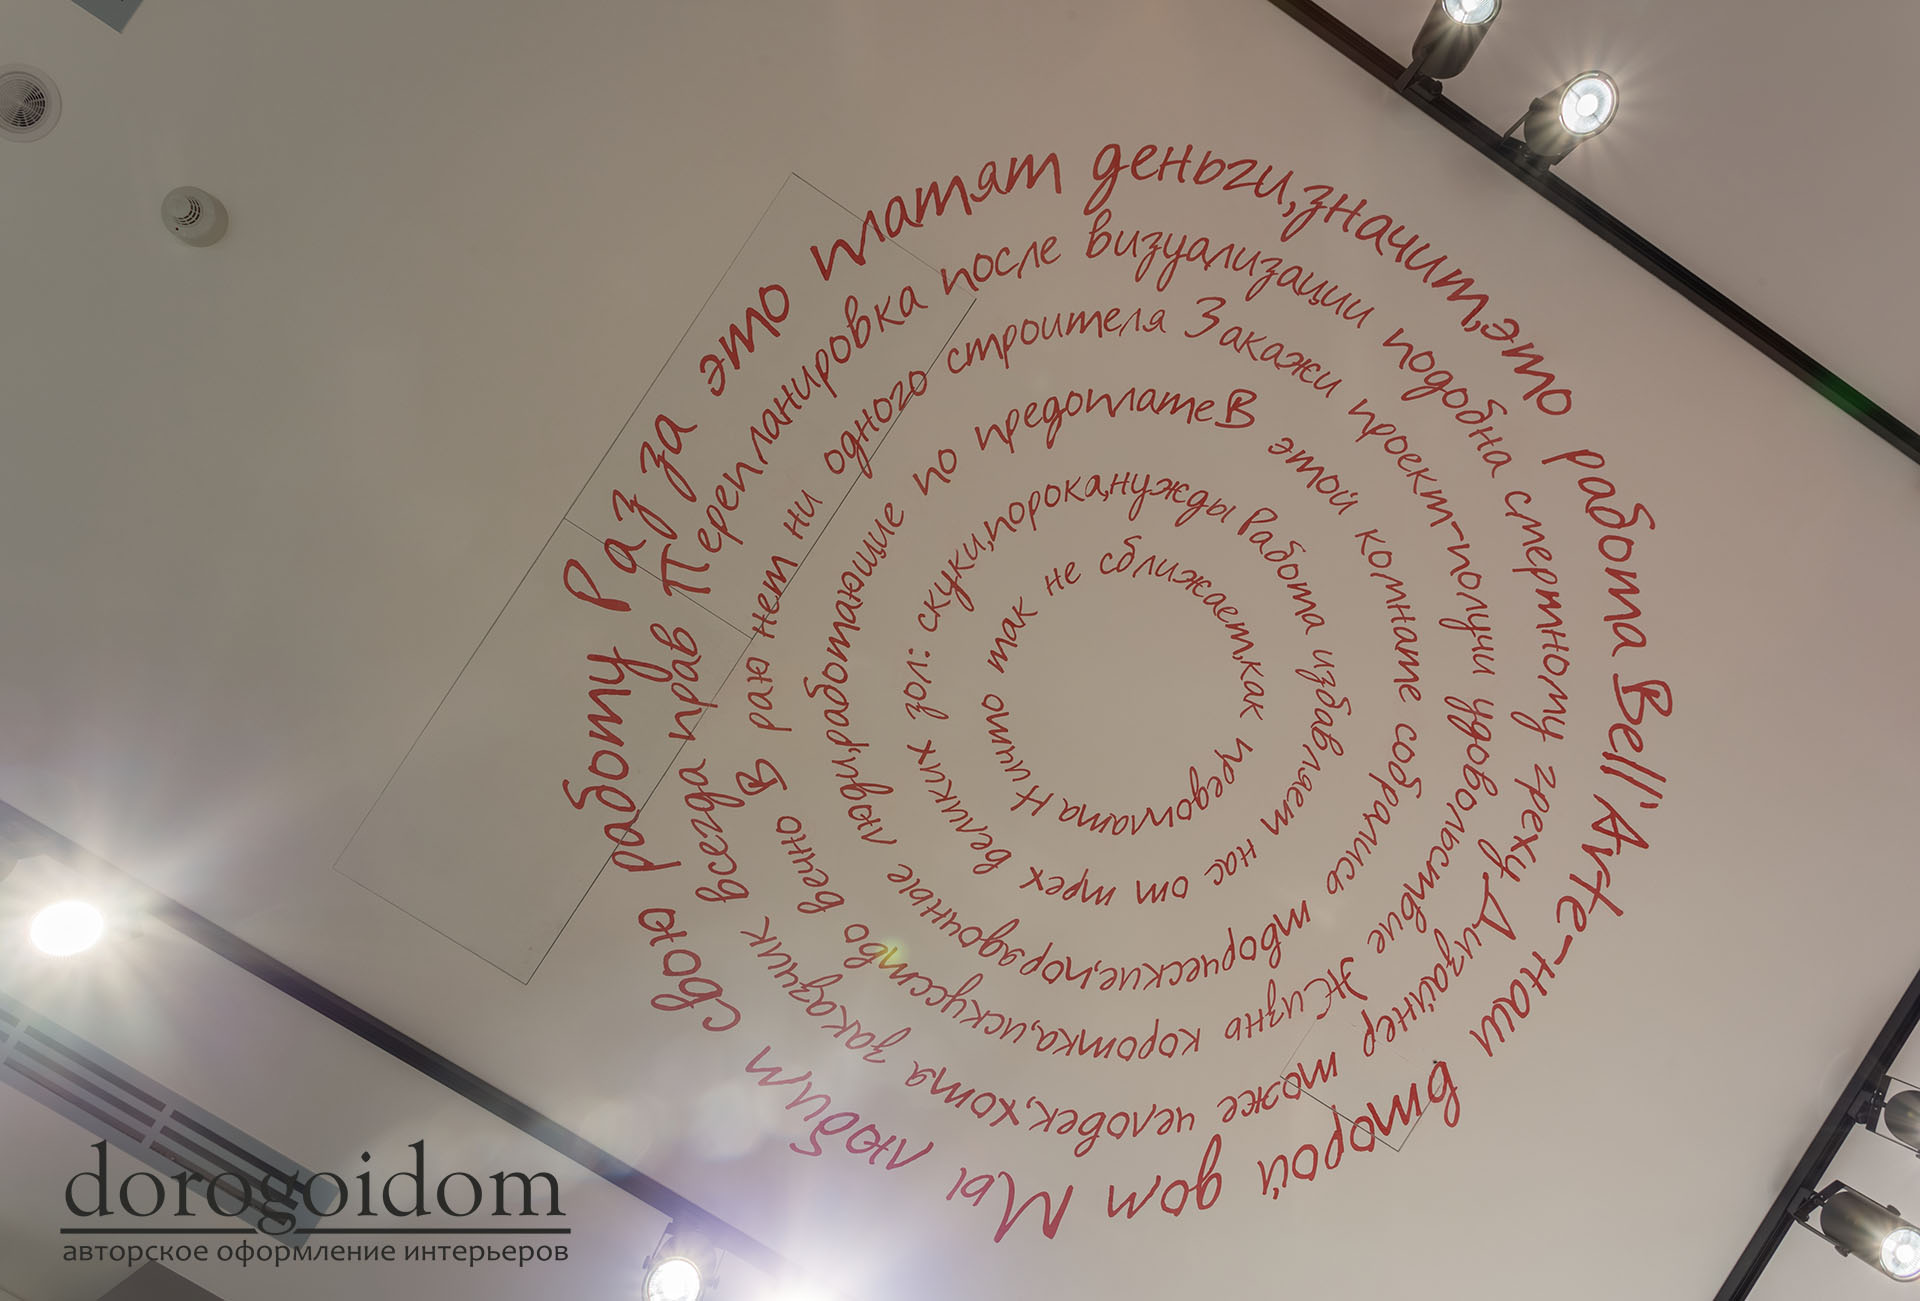 Мы любим свою работу Раз за это платят деньги,значит,это работа Bell'Arte-наш второй дом
Дизайнер тоже человек,хотя заказчик всегда прав Перепланировка после визуализации подобна смертному греху
Жизнь коротка,искусство вечно В раю нет ни одного строителя Закажи проект-получи удовольствие
В этой комнате собрались творческие,порядочные люди,работающие по предоплате
Работа избавляет нас от трех великих зол: скуки,порока,нужды
Ничто так не сближает,как предоплата
dorogoidom
авторское оформление интерьеров